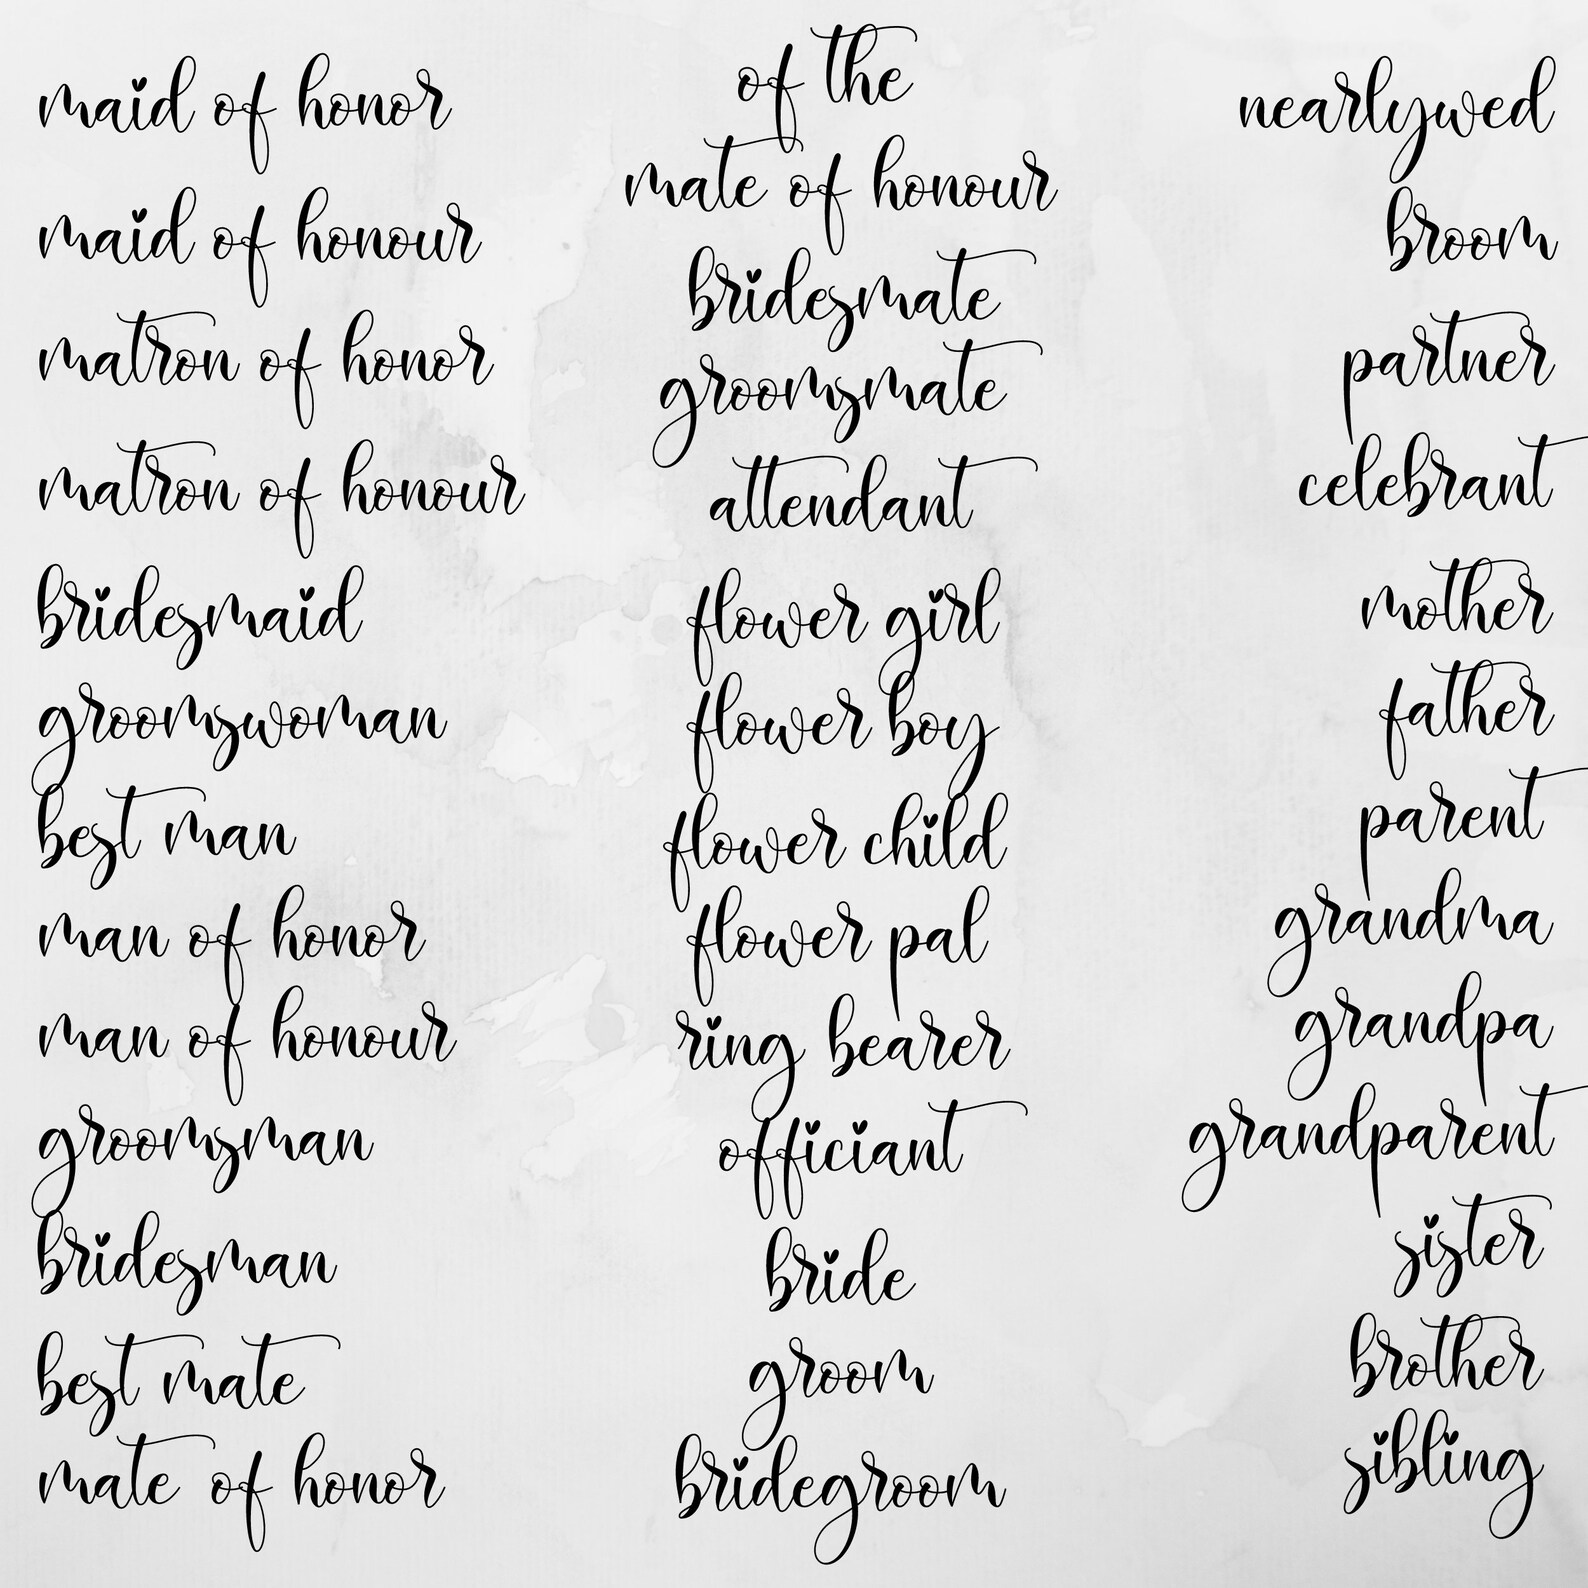 maid of honor
maid of honour
matron of honor
matron of honour
bridesmaid
groomswoman
best man
man of honor
man of honour
groomsman
bridesman
best mate
mate of honor
of the
mate of honour
bridesmate
groomsmate
attendant
flower girl
flower boy
flower child
flower pal
ring bearer
officiant
bride
groom
bridegroom
nearlywed
broom
partner
celebrant
mother
father
parent
grandma
grandpa
grandparent
sister
brother
sibling